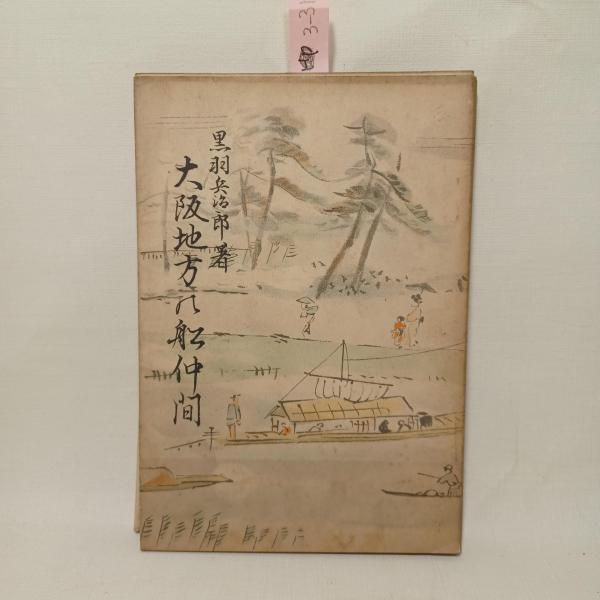 3-3
黒羽兵治郎著
大阪地方の船仲間